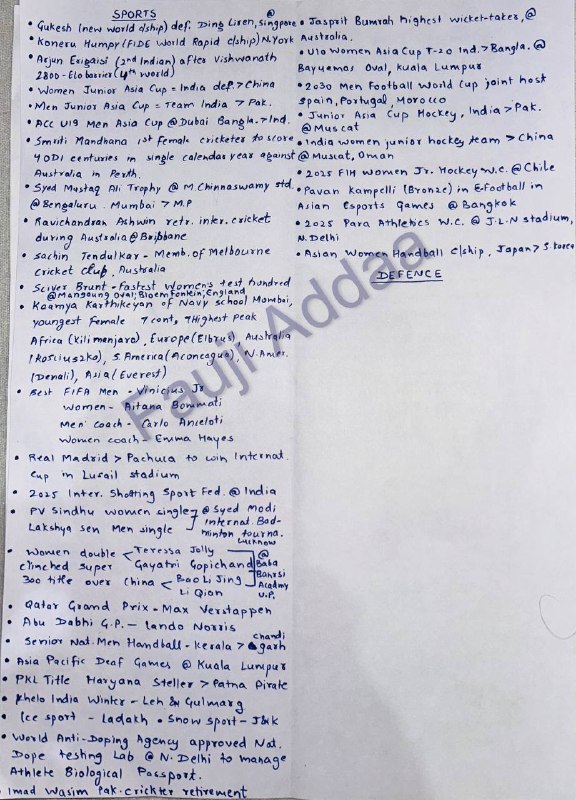 SPORTS
• Gukesh (new world c/ship) def. Ding Liren, @ Singpore
• Koneru Humpy (FIDE World Rapid c/ship) N.York
• Arjun Erigaisi (2nd Indian) after Vishwanath
2800-Elo barrier (4th world)
• Women Junior Asia Cup = India def. > China
• Men Junior Asia Cup = Team India > Pak.
• ACC U19 Men Asia Cup @ Dubai Bangla. > Ind.
• Smriti Mandhana 1st female cricketer to score
4 ODI centuries in single calendar year against
Australia in Perth.
• Syed Mustaq Ali Trophy @ M. Chinnaswamy std.
@ Bengaluru. Mumbai > M.P
• Ravichandran Ashwin retr. inter. cricket
during Australia @ Brisbane
• Sachin Tendulkar - Memb. of Melbourne
cricket club, Australia
• Sciver Brunt - Fastest Women's test hundred
@ Mangaung Oval; Bloemfontein, England
• Kaamya Karthikeyan of Navy school Mumbai,
youngest female 7 cont, 7 Highest Peak
Africa (Kilimanjaro), Europe (Elbrus), Australia
(Kosciuszko), S. America (Aconcagua), N. Amer.
(Denali), Asia (Everest)
• Best FIFA Men - Vinicius Jr
Women - Aitana Bonmati
Men coach - Carlo Anceloti
Women coach - Emma Hayes
• Real Madrid > Pachuca to win Internat.
Cup in Lusail stadium
• 2025 Inter. Shotting Sport Fed. @ India
• PV Sindhu women single
Lakshya Sen Men single
@ Syed Modi
Internat. Bad-
minton tourna.
Lucknow
• Women double
clinched super
300 title over China
Teressa Jolly
Gayatri Gopichand
Bao Li Jing
Li Qian
@
Baba
Banrsi
Academy
U.P.
• Qatar Grand Prix - Max Verstappen
• Abu Dabhi G.P. - Lando Norris
• Senior Nat. Men Handball - Kerala > Chandigarh
• Asia Pacific Deaf Games @ Kuala Lumpur
• PKL Title Haryana Steller > Patna Pirate
• Khelo India Winter - Leh & Gulmarg
• Ice sport - Ladakh • Snow sport - J&K
• World Anti-Doping Agency approved Nat.
Dope testing Lab @ N. Delhi to manage
Athlete Biological Passport.
• Imad Wasim Pak. Crickter retirement
• Jasprit Bumrah highest wicket-taker, @
Australia.
• U19 Women Asia Cup T-20 Ind. > Bangla. @
Bayuemas Oval, Kuala Lumpur
• 2030 Men Football World Cup joint host
Spain, Portugal, Morocco
• Junior Asia Cup Hockey, India > Pak.
@ Muscat
• India women junior hockey team > China
@ Muscat, Oman
• 2025 FIH Women Jr. Hockey W.C. @ Chile
• Pavan Kampelli (Bronze) in E-Football in
Asian Esports Games @ Bangkok
• 2025 Para Athletics W.C. @ J.L.N stadium,
N. Delhi
• Asian Women Handball C/ship, Japan > S Korea
DEFENCE
Fauji Addaa